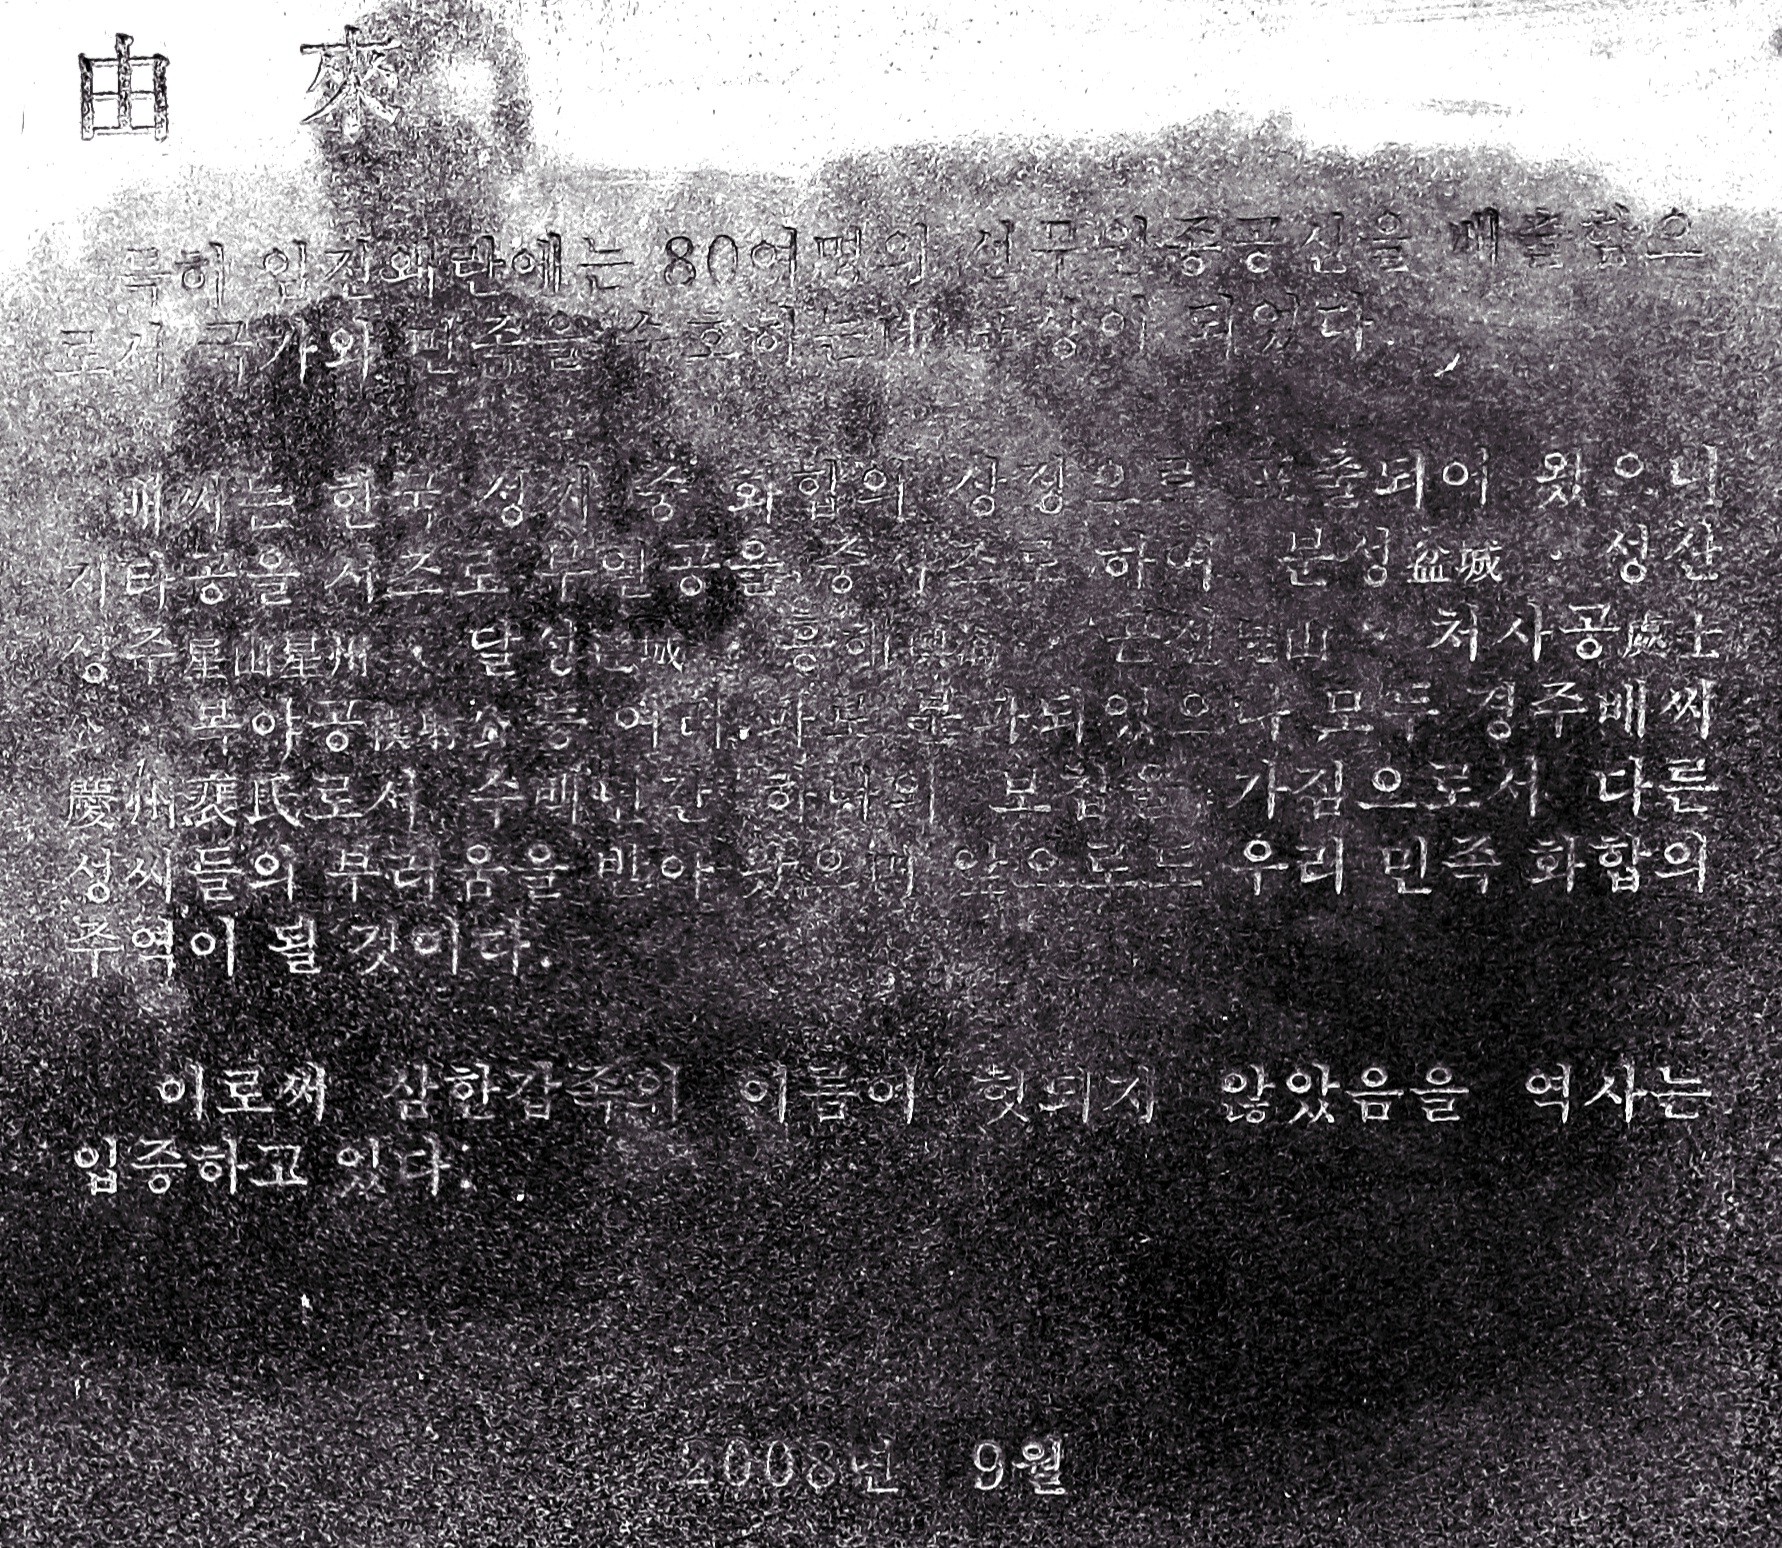 由 來
특히 임진왜란에는 80여명의 선무원종공신을 배출함으
로서 국가와 민족을 수호하는데 표상이 되었다.
배씨는 한국 성씨 중 화합의 상징으로 표출되어 왔으니
지타공을 시조로 무열공을 중시조로 하여 분성盆城 · 성산
성주星山星州 · 달성達城 · 흥해興海 · 곤산昆山 · 처사공處士
公 · 백야공 公등 여러 파로 분파되었으나 모두 경주배씨
慶州裵氏로서 수백년간 하나의 보첩을 가짐으로서 다른
성씨들의 부러움을 받아 왔으며 앞으로도 우리 민족 화합의
주역이 될 것이다.
이로써 삼한갑족의 이름이 헛되지 않았음을 역사는
입증하고 있다.
2008년 9월